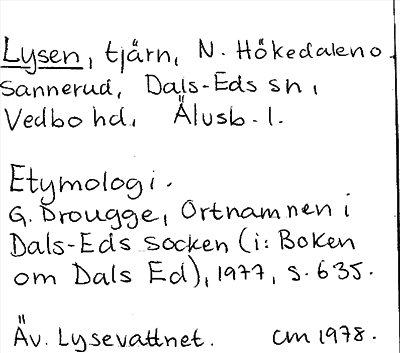 Lysen, tjärn, N. Hökedalen o.
Sannerud, Dals-Eds sn,
Vedbo hd. Älvsb. l.
Etymologi.
G. Drougge, Ortnamnen i
Dals-Eds socken (i: Boken
om Dals Ed), 1977, s. 635.
Äv. Lysevattnet. CM 1978.